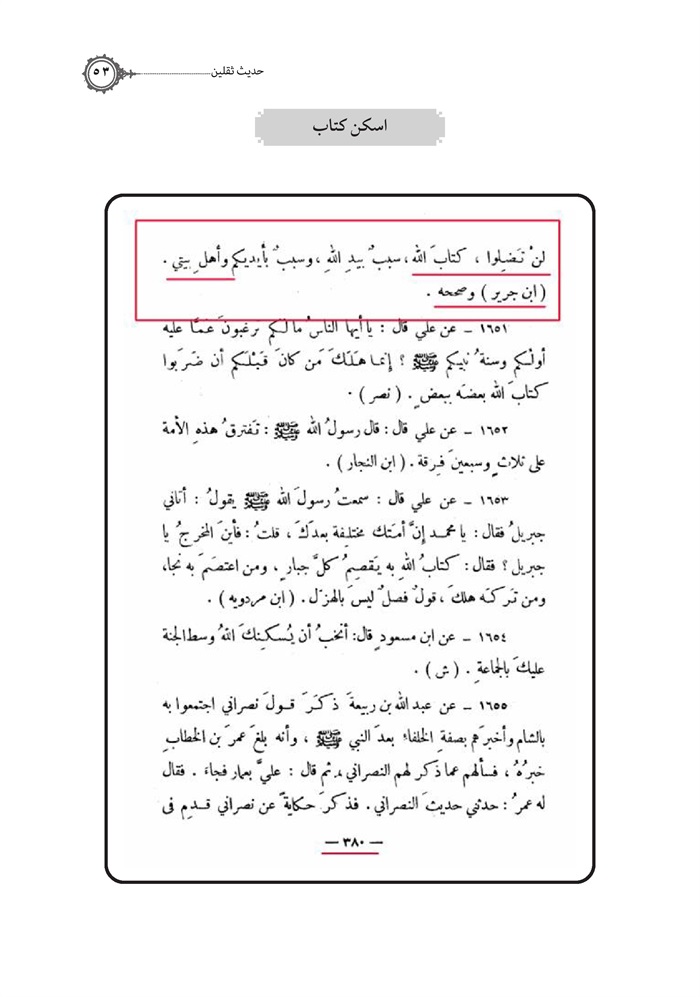 حدیث ثقلین
۵۳
اسکن کتاب
لنْ تَضِلوا ، كتابَ الله ، سببٌ بيدِ اللهِ ، وسببٌ بأيديكم وأهلِ بيتي .
( ابن جرير ) وصححه .
١٦٥١ – عن علي قال : يا أيها الناسُ مالكم ترغبونَ عَمَّا عليه
أولُكم وسنةُ نبيكم ﷺ ؟ إنما هَلَكَ مَن كانَ قَبْلَكم أن ضَرَبوا
كتابَ الله بعضَه ببعضٍ . ( نصر ) .
١٦٥٢ – عن علي قال : قال رسولُ الله ﷺ : تَفترقُ هذهِ الأمة
على ثلاثٍ وسبعينَ فِرقة . ( ابن النجار ) .
١٦٥٣ – عن علي قال : سمعتُ رسولَ الله ﷺ يقولُ : أتاني
جبريلُ فقال : يا محمد إنَّ أمتَك مختلِفة بعدَكَ ، قلتُ : فأينَ المخرجُ يا
جبريل ؟ فقال : كتابُ اللهِ به يَقصِمُ كلَّ جبارٍ ، ومن اعتصَمَ به نجا،
ومن تركَه هلكَ ، قولٌ فصلٌ ليسَ بالهزل . ( ابن مردويه ) .
١٦٥٤ – عن ابن مسعودٍ قال: أتحبُ أن يُسكِنكَ اللهُ وسط الجنة
عليكَ بالجماعةِ . ( ش ) .
١٦٥٥ – عن عبد الله بن ربيعةَ ذكَرَ قولَ نصراني اجتمعوا به
بالشام وأخبرَهم بصفةِ الخلفاءِ بعدَ النبي ﷺ ، وأنه بلغَ عمرَ بن الخطابِ
خبرُهُ ، فسألهم عما ذكر لهم النصراني ، ثم قال : عليَّ بعمار فجاءَ . فقال
له عمرُ : حدثني حديثَ النصراني . فذكرَ حكايةً عن نصراني قدمِ فى
— ٣٨٠ —